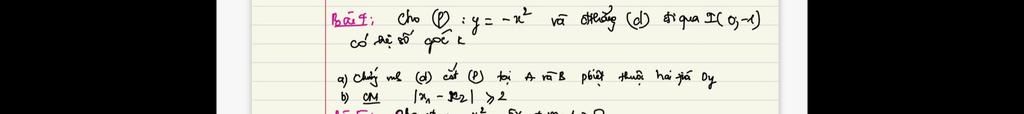 Bài 4: Cho (P): y = -x² và đthẳng (d) đi qua I(0,-1)
có hệ số góc k
a) Chứng mh (d) cắt (P) tại A và B pbiệt thuộc hai phía Oy
b) CM |x₁ - x₂| ≥ 2